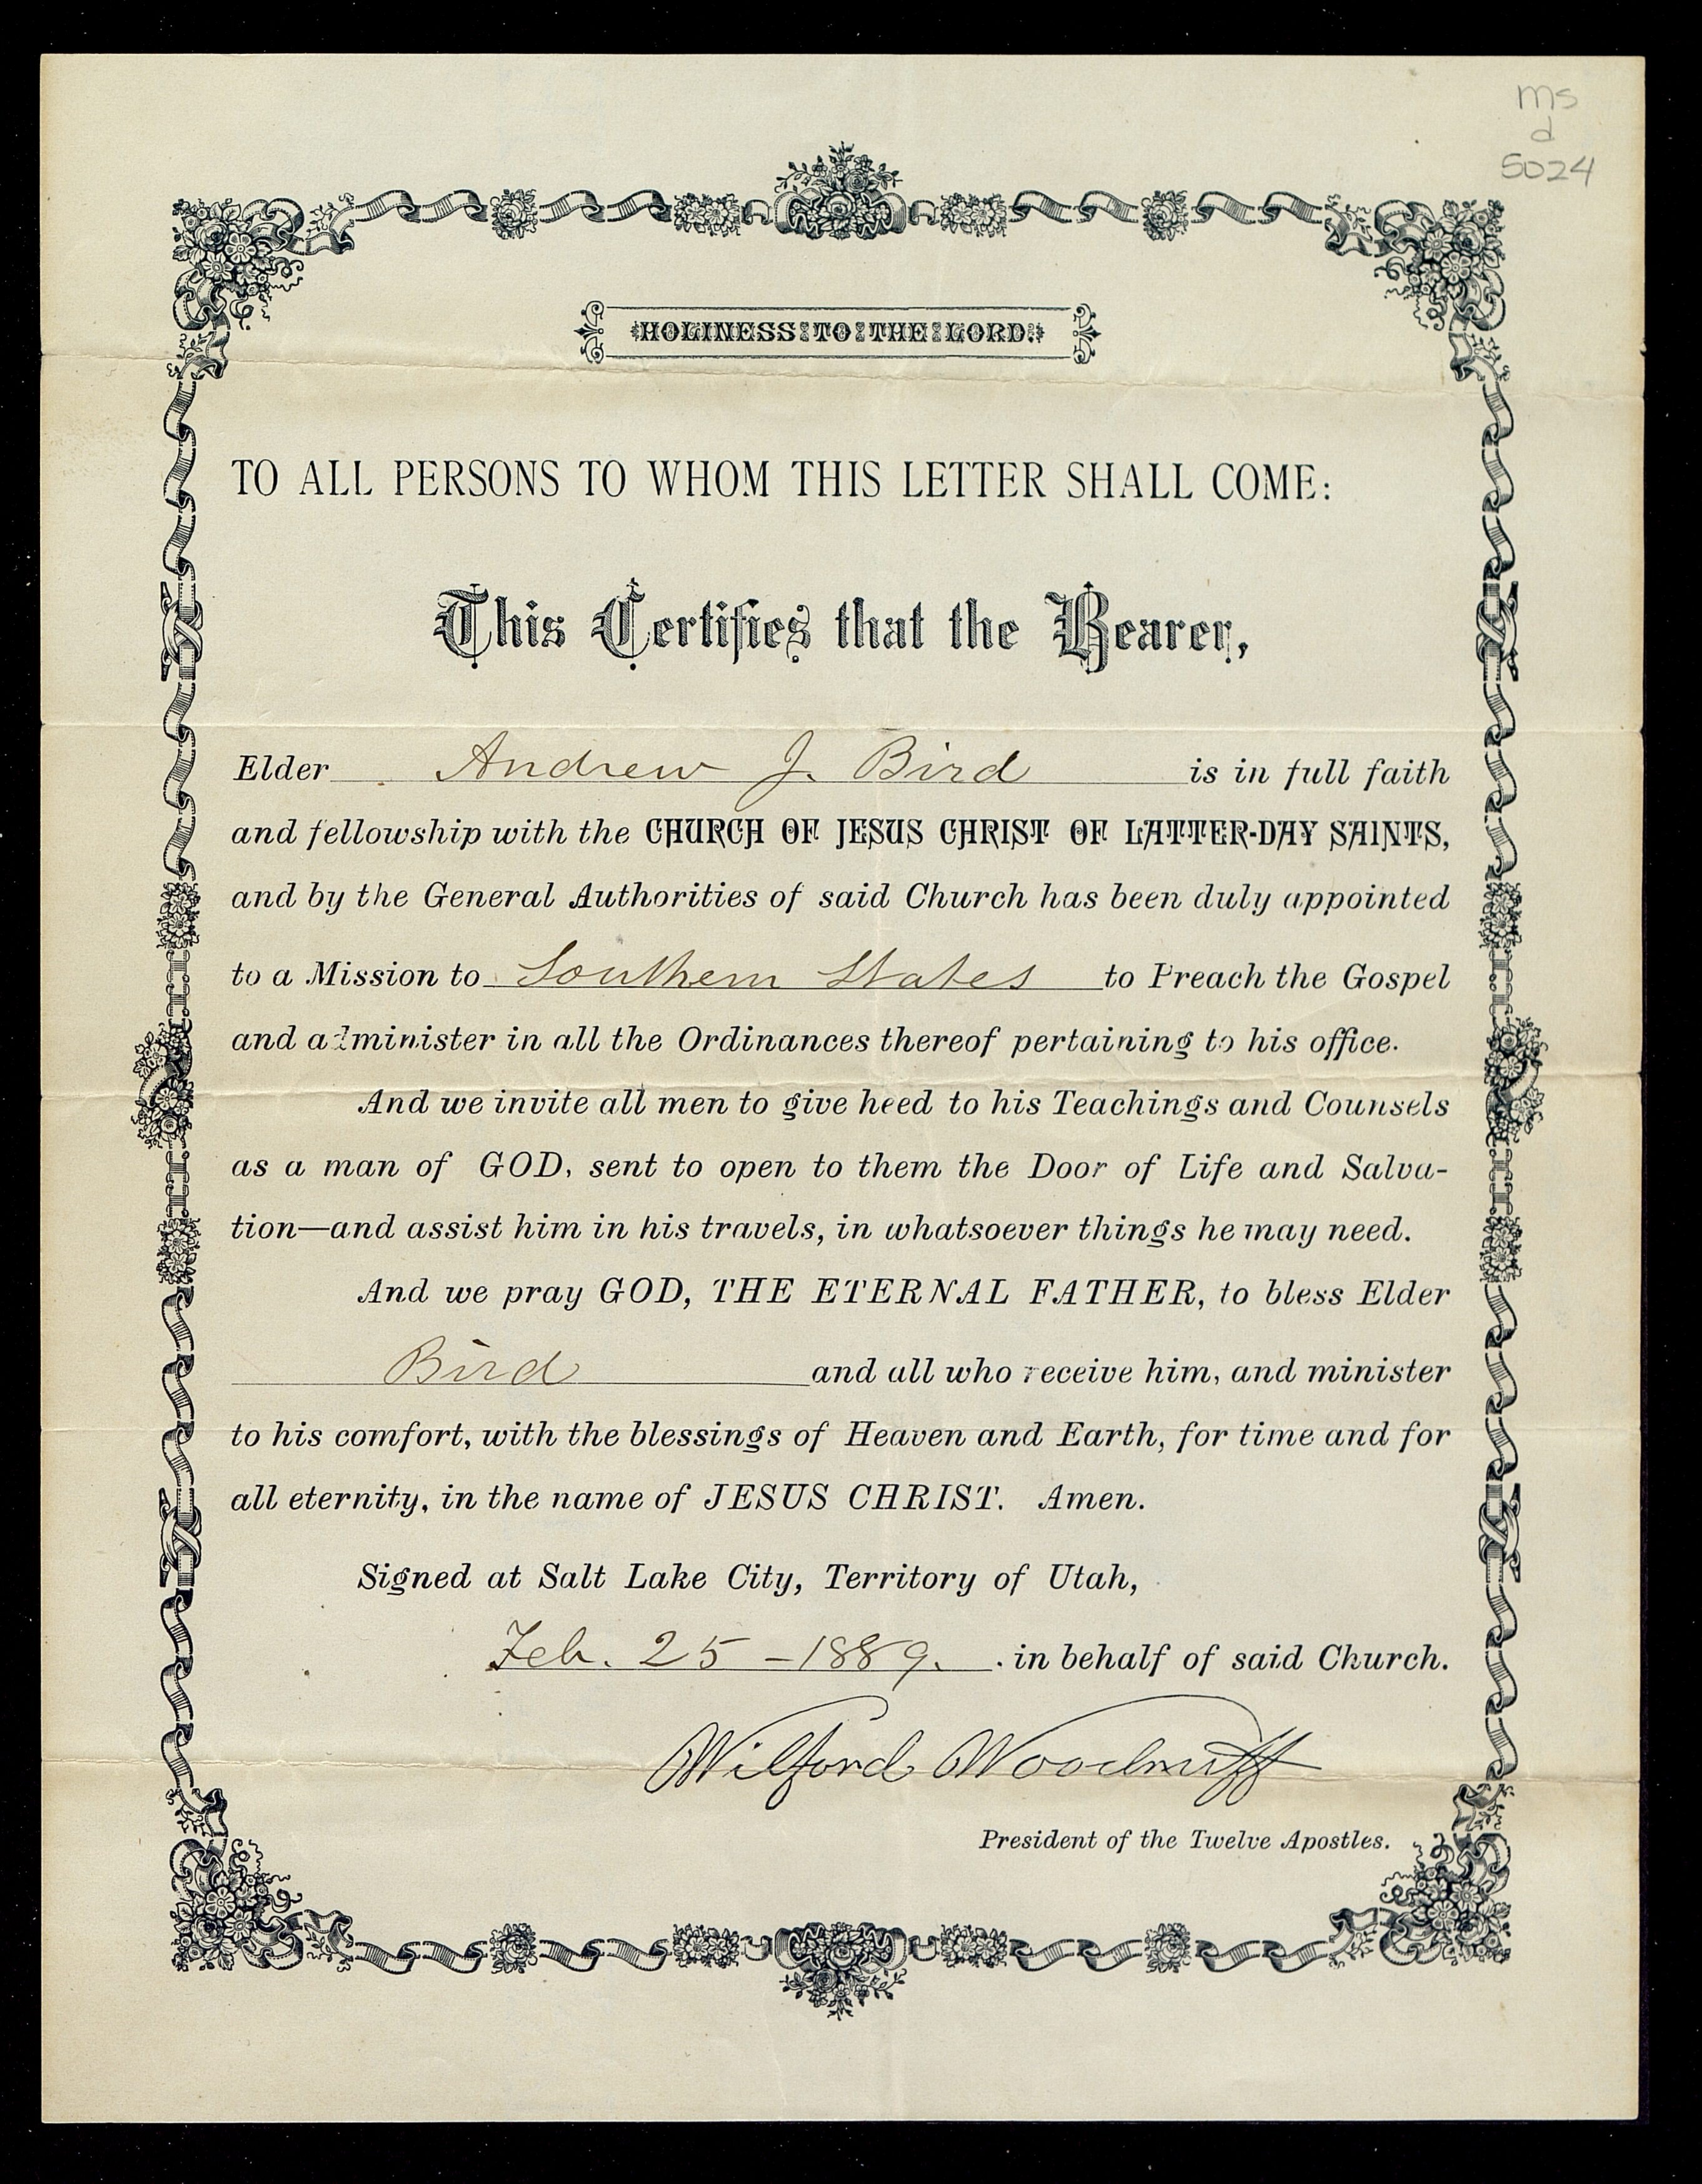 ms
d
5024
HOLINESS TO THE LORD.
TO ALL PERSONS TO WHOM THIS LETTER SHALL COME:
This Certifies that the Bearer,
Elder Andrew J. Bird is in full faith
and fellowship with the CHURCH OF JESUS CHRIST OF LATTER-DAY SAINTS,
and by the General Authorities of said Church has been duly appointed
to a Mission to Southern States to Preach the Gospel
and administer in all the Ordinances thereof pertaining to his office.
And we invite all men to give heed to his Teachings and Counsels
as a man of GOD, sent to open to them the Door of Life and Salva-
tion—and assist him in his travels, in whatsoever things he may need.
And we pray GOD, THE ETERNAL FATHER, to bless Elder
Bird and all who receive him, and minister
to his comfort, with the blessings of Heaven and Earth, for time and for
all eternity, in the name of JESUS CHRIST. Amen.
Signed at Salt Lake City, Territory of Utah,
Feb. 25 - 1889. in behalf of said Church.
Wilford Woodruff
President of the Twelve Apostles.